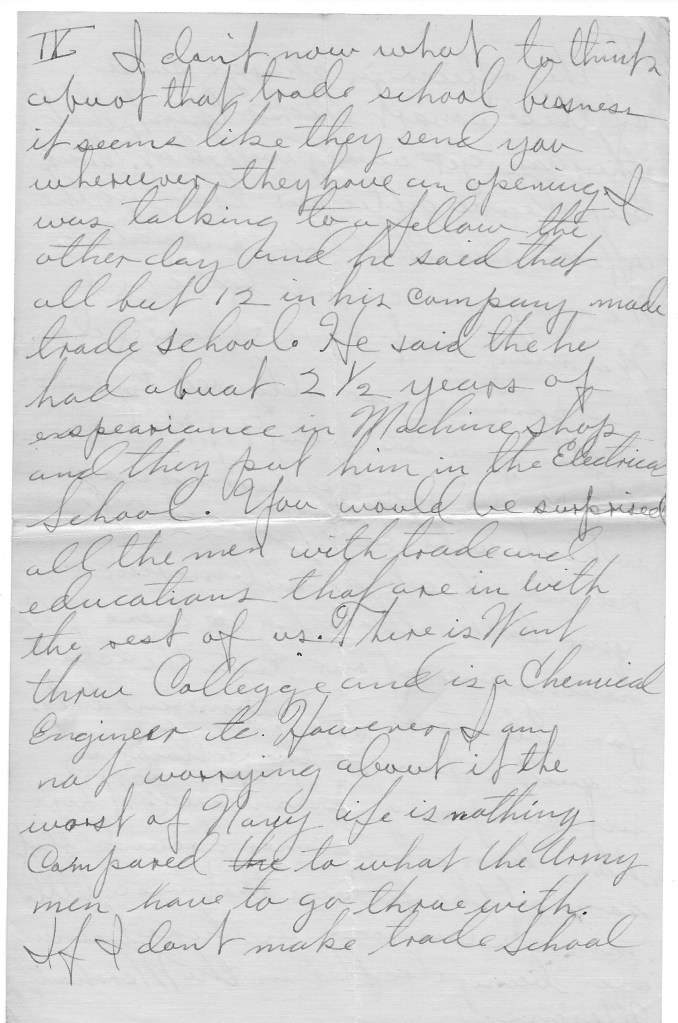 IV I don't now what to think
abuot that trade school bussness
it seems like they send you
wherever they have an opening. I
was talking to a fellow the
other day and he said that
all but 12 in his company made
trade school. He said the he
had abuat 2 1/2 years of
expeariance in Machine shop
and they put him in the Electrical
School. You would be surprised
all the men with trade and
educations that are in with
the rest of us. There is Wint
thrue Collegge and is a Chemical
Engineer tc. However I am
not worrying about it the
worst of Navy life is nothing
Compared the to what the Army
men have to go thrue with.
If I dont make trade School